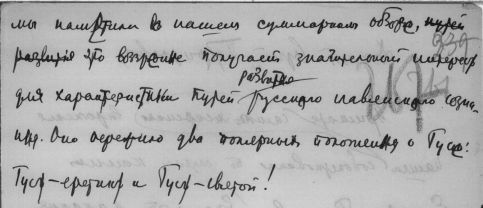 мы наметили в нашем суммарном обзоре, путей
развития это воззрение получает значительный интерес
развития
для характеристики путей русского мавленского созна-
ния. Оно пережило два полярных положения о Гусе:
Гус-еретик и Гус-святой!